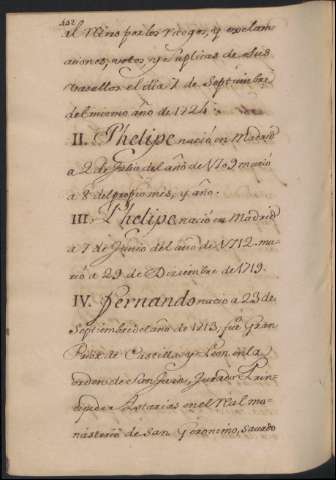 402
el Reino por los ruegos, y exclam
aciones, votos, y suplicas de sus
vasallos el dia 7 de Septiembre
del mismo año de 1724.
II. Phelipe nació en Madrid
a 2 de Julio del año de 1709 murió
a 8 del propio mes, y año.
III. Phelipe nació en Madrid
a 7 de Junio del año de 1712. mu
rió a 29 de Diciembre de 1719.
IV. Fernando nacio a 23 de
Septiembre del año de 1713, fué Gran
Prior de Castilla, y Leon, en la
orden de San Juan, Jurado Prin
cipe de Asturias en el Real mo
násterio de San Geronimo, sacado